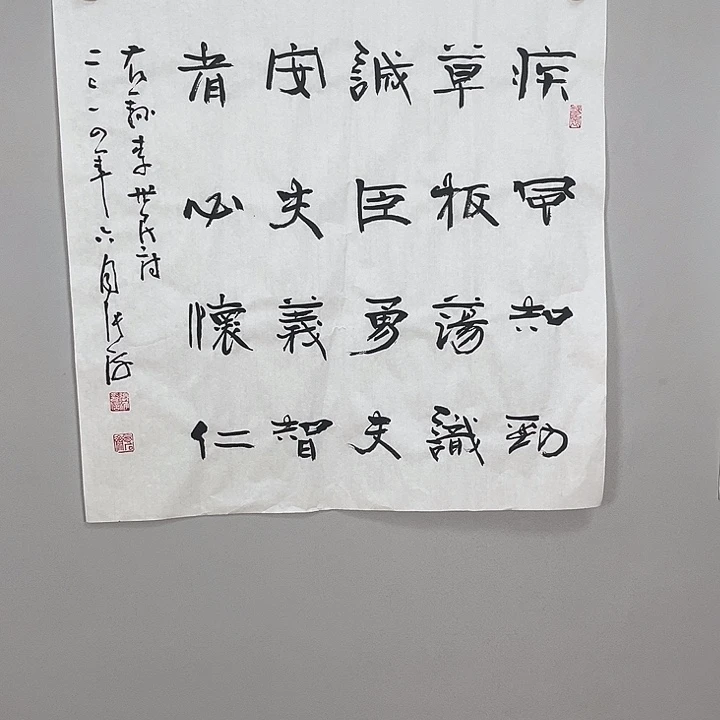 疾風知勁
草板蕩識
誠臣勇夫
安義智
者必懷仁
右錄李世民詩
二〇一四年六月